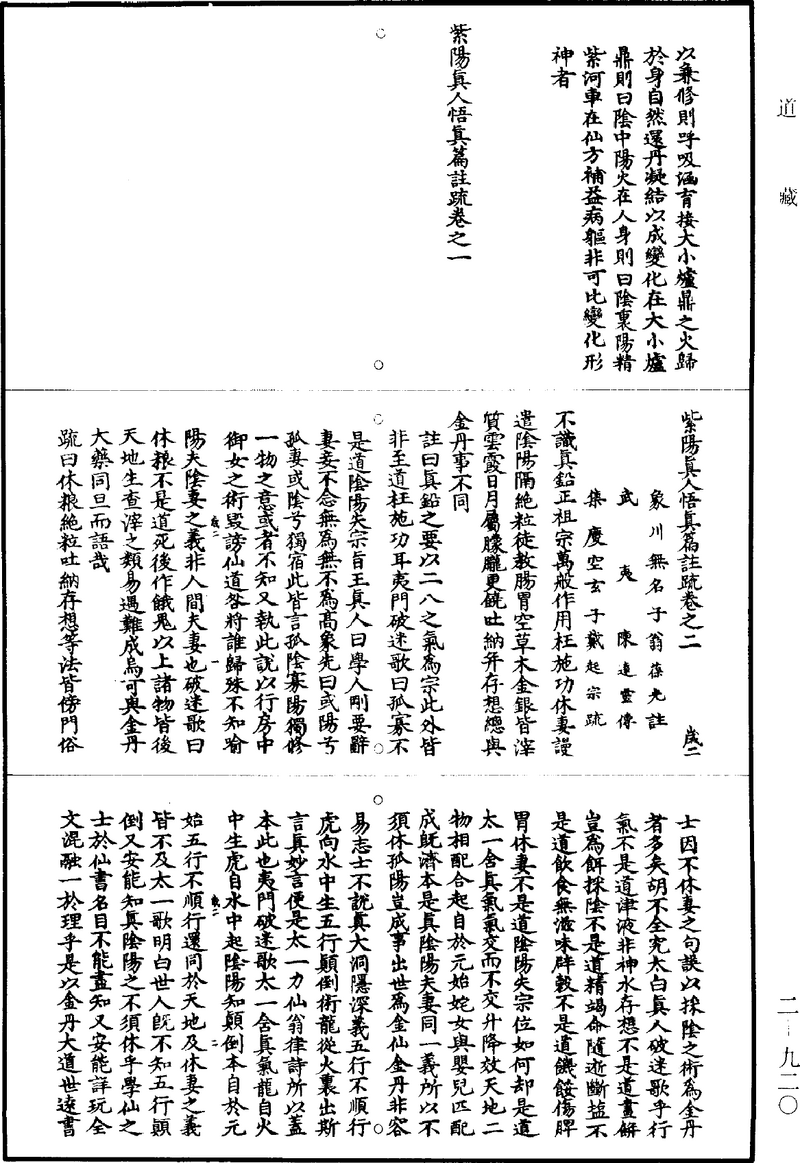 道藏
以兼修則呼吸涵育接大小爐鼎之火歸
於身自然還丹凝結以成變化在大小爐
鼎則曰陰中陽火在人身則曰陰裏陽精
紫河車在仙方補益病軀非可比變化形
神者
紫陽真人悟真篇註疏卷之一
紫陽真人悟真篇註疏卷之二
歲二
象川無名子翁葆光註
武夷陳達靈傳
集慶空玄子戴起宗疏
不識真鉛正祖宗萬般作用枉施功休妻謾
遣陰陽隔絕粒徒教腸胃空草木金銀皆滓
質雲霞日月屬朦朧更饒吐納并存想總與
金丹事不同
註曰真鉛之要以二八之氣為宗此外皆
非至道枉施功耳夷門破迷歌曰孤寡不
是道陰陽失宗旨王真人曰學人剛要辭
妻妾不念無為無不為高象先曰或陽兮
孤妻或陰兮獨宿此皆言孤陰寡陽獨修
一物之意或者不知又執此說以行房中
御女之術毀謗仙道咎將誰歸殊不知喻
陽夫陰妻之義非人間夫妻也破迷歌曰
休粮不是道死後作餓鬼以上諸物皆後
天地生查滓之類易遇難成烏可與金丹
大藥同旦而語哉
疏曰休粮絕粒吐納存想等法皆傍門俗
士因不休妻之句誤以採陰之術為金丹
者多矣胡不全究太白真人破迷歌乎行
氣不是道津液非神水存想不是道畫餅
豈為餌採陰不是道精竭命隨逝斷鹽不
是道飲食無滋味辟穀不是道饑餒傷脾
胃休妻不是道陰陽失宗位如何却是道
太一含真氣氣交而不交升降效天地二
物相配合起自於元始姹女與嬰兒匹配
成既濟本是真陰陽夫妻同一義所以不
須休孤陽豈成事出世為金仙金丹非容
易志士不說真大洞隱深義五行不順行
虎向水中生五行顛倒術龍從火裏出斯
言真妙言便是太一力仙翁律詩所以蓋
本此也夷門破迷歌太一含真氣龍自火
中生虎自水中起陰陽知顛倒本自於元
始五行不順行還同於天地及休妻之義
皆不及太一歌明白世人既不知五行顛
倒又安能知真陰陽之不須休乎學仙之
士於仙書名目不能盡知又安能詳玩全
文混融一於理乎是以金丹大道世遠書
二－九二〇